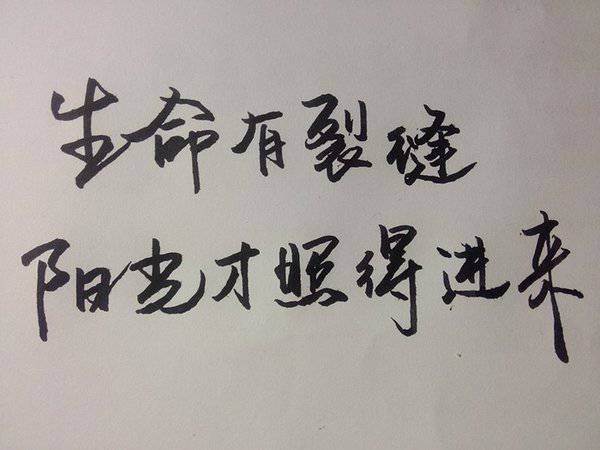 生命有裂缝
阳光才照得进来